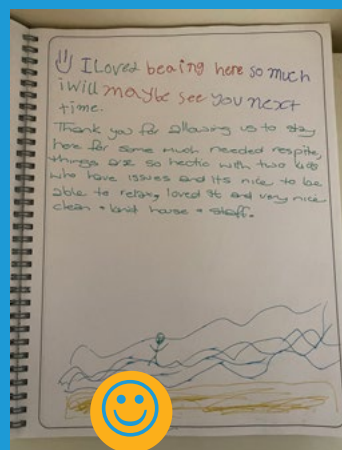 I Loved beaing here so much
i will maybe see you next
time.
Thank you for allowing us to stay
here for some much needed respite,
things are so hectic with two kids
who have issues and its nice to be
able to relax, loved it and very nice
clean + kind house + staff.